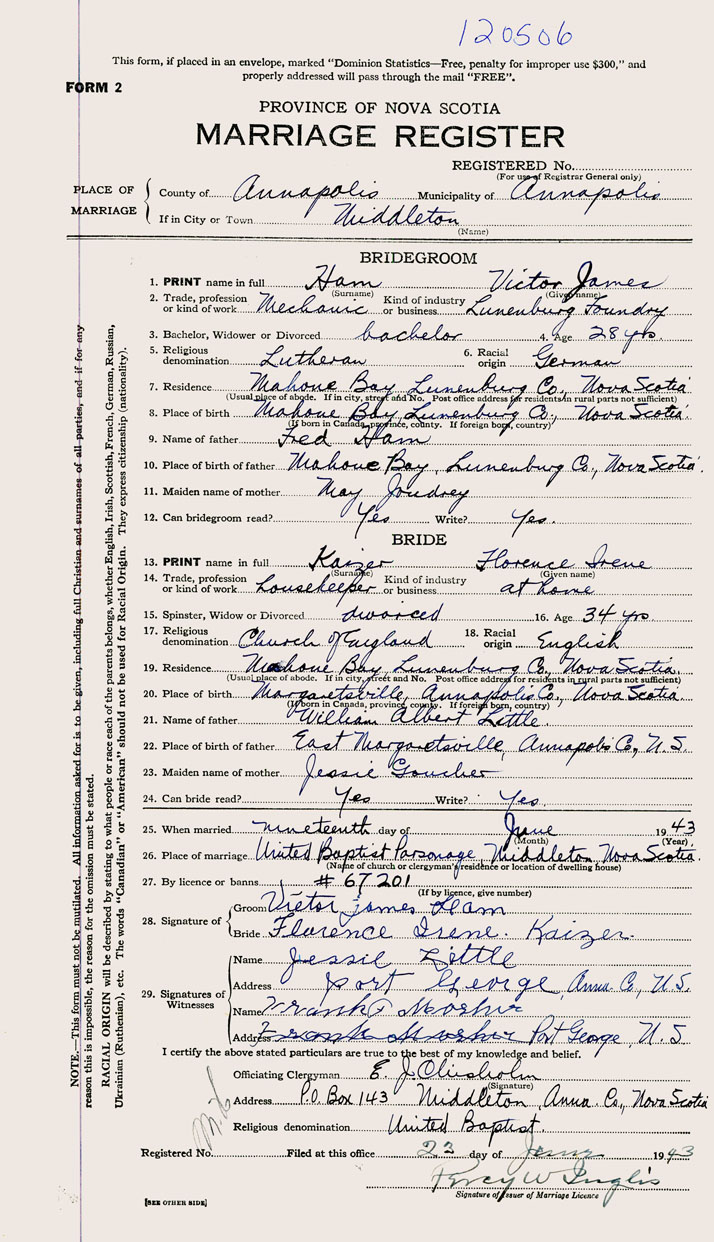 120506
This form, if placed in an envelope, marked "Dominion Statistics—Free, penalty for improper use $300," and
properly addressed will pass through the mail "FREE".
FORM 2
PROVINCE OF NOVA SCOTIA
MARRIAGE REGISTER
REGISTERED No.
(For use of Registrar General only)
PLACE OF MARRIAGE
County of Annapolis Municipality of Annapolis
If in City or Town Middleton
(Name)
BRIDEGROOM
1. PRINT name in full Ham Victor James
(Surname) (Given name)
2. Trade, profession or kind of work Mechanic Kind of industry or business Lunenburg Foundry
3. Bachelor, Widower or Divorced bachelor 4. Age 28 yrs.
5. Religious denomination Lutheran 6. Racial origin German
7. Residence Mahone Bay Lunenburg Co., Nova Scotia
(Usual place of abode. If in city, street and No. Post office address for residents in rural parts not sufficient)
8. Place of birth Mahone Bay, Lunenburg Co., Nova Scotia.
(If born in Canada, province, county. If foreign born, country)
9. Name of father Fred Ham
10. Place of birth of father Mahone Bay, Lunenburg Co., Nova Scotia.
11. Maiden name of mother May Joudrey
12. Can bridegroom read? Yes Write? Yes.
BRIDE
13. PRINT name in full Kaizer Florence Irene
(Surname) (Given name)
14. Trade, profession or kind of work Housekeeper Kind of industry or business at home
15. Spinster, Widow or Divorced divorced 16. Age 34 yrs.
17. Religious denomination Church of England 18. Racial origin English
19. Residence Mahone Bay, Lunenburg Co., Nova Scotia
(Usual place of abode. If in city, street and No. Post office address for residents in rural parts not sufficient)
20. Place of birth Margaretsville, Annapolis Co., Nova Scotia
(If born in Canada, province, county. If foreign born, country)
21. Name of father William Albert Little.
22. Place of birth of father East Margaretsville, Annapolis Co., N.S.
23. Maiden name of mother Jessie Goucher
24. Can bride read? Yes Write? Yes.
25. When married nineteenth day of June 1943
(Month) (Year)
26. Place of marriage United Baptist Parsonage, Middleton Nova Scotia.
(Name of church or clergyman's residence or location of dwelling house)
27. By licence or banns # 67201
(If by licence, give number)
28. Signature of
Groom Victor James Ham
Bride Florence Irene. Kaizer.
29. Signatures of Witnesses
Name Jessie Little
Address Port George, Anna Co, N.S.
Name Frank Mosher
Address Frank Mosher Port George, N.S
I certify the above stated particulars are true to the best of my knowledge and belief.
Officiating Clergyman E. J. Chisholm
(Signature)
Address P.O. Box 143 Middleton, Anna. Co., Nova Scotia
Religious denomination United Baptist.
Registered No. Filed at this office 22 day of June 1943
Percy W Inglis
Signature of Issuer of Marriage Licence
[SEE OTHER SIDE]
NOTE.—This form must not be mutilated. All information asked for is to be given, including full Christian and surnames of all parties, and if for any
reason this is impossible, the reason for the omission must be stated.
RACIAL ORIGIN will be described by stating to what people or race each of the parents belongs, whether English, Irish, Scottish, French, German, Russian,
Ukrainian (Ruthenian), etc. The words "Canadian" or "American" should not be used for Racial Origin. They express citizenship (nationality).